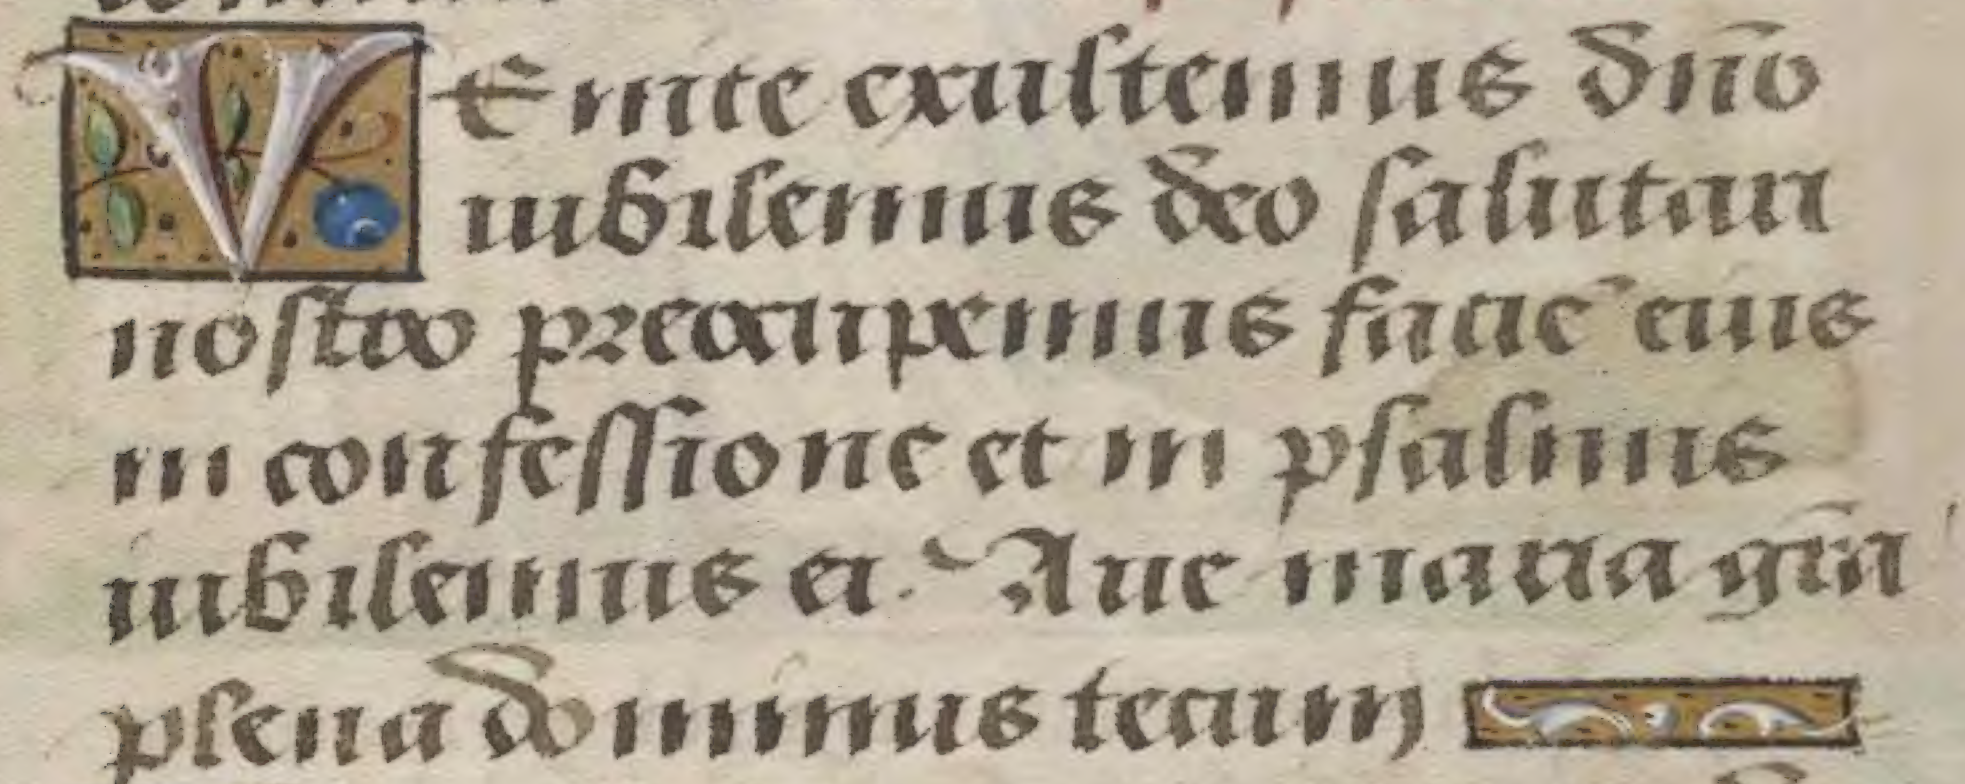 VEnite exultemus dn̄o
iubilemus deo salutari
nostro preocupemus faciē eius
in confessione et in psalmis
iubilemus ei. Aue maria gr̄a
plena dominus tecum